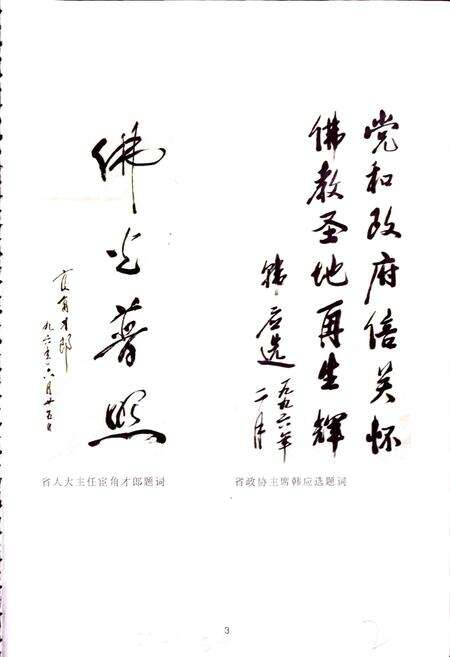 党和政府倍关怀
佛教圣地再生辉
韩应选
一九九六年
二月
佛光普照
宦角才郎
九六年六月廿五日
省人大主任宦角才郎题词
省政协主席韩应选题词
3